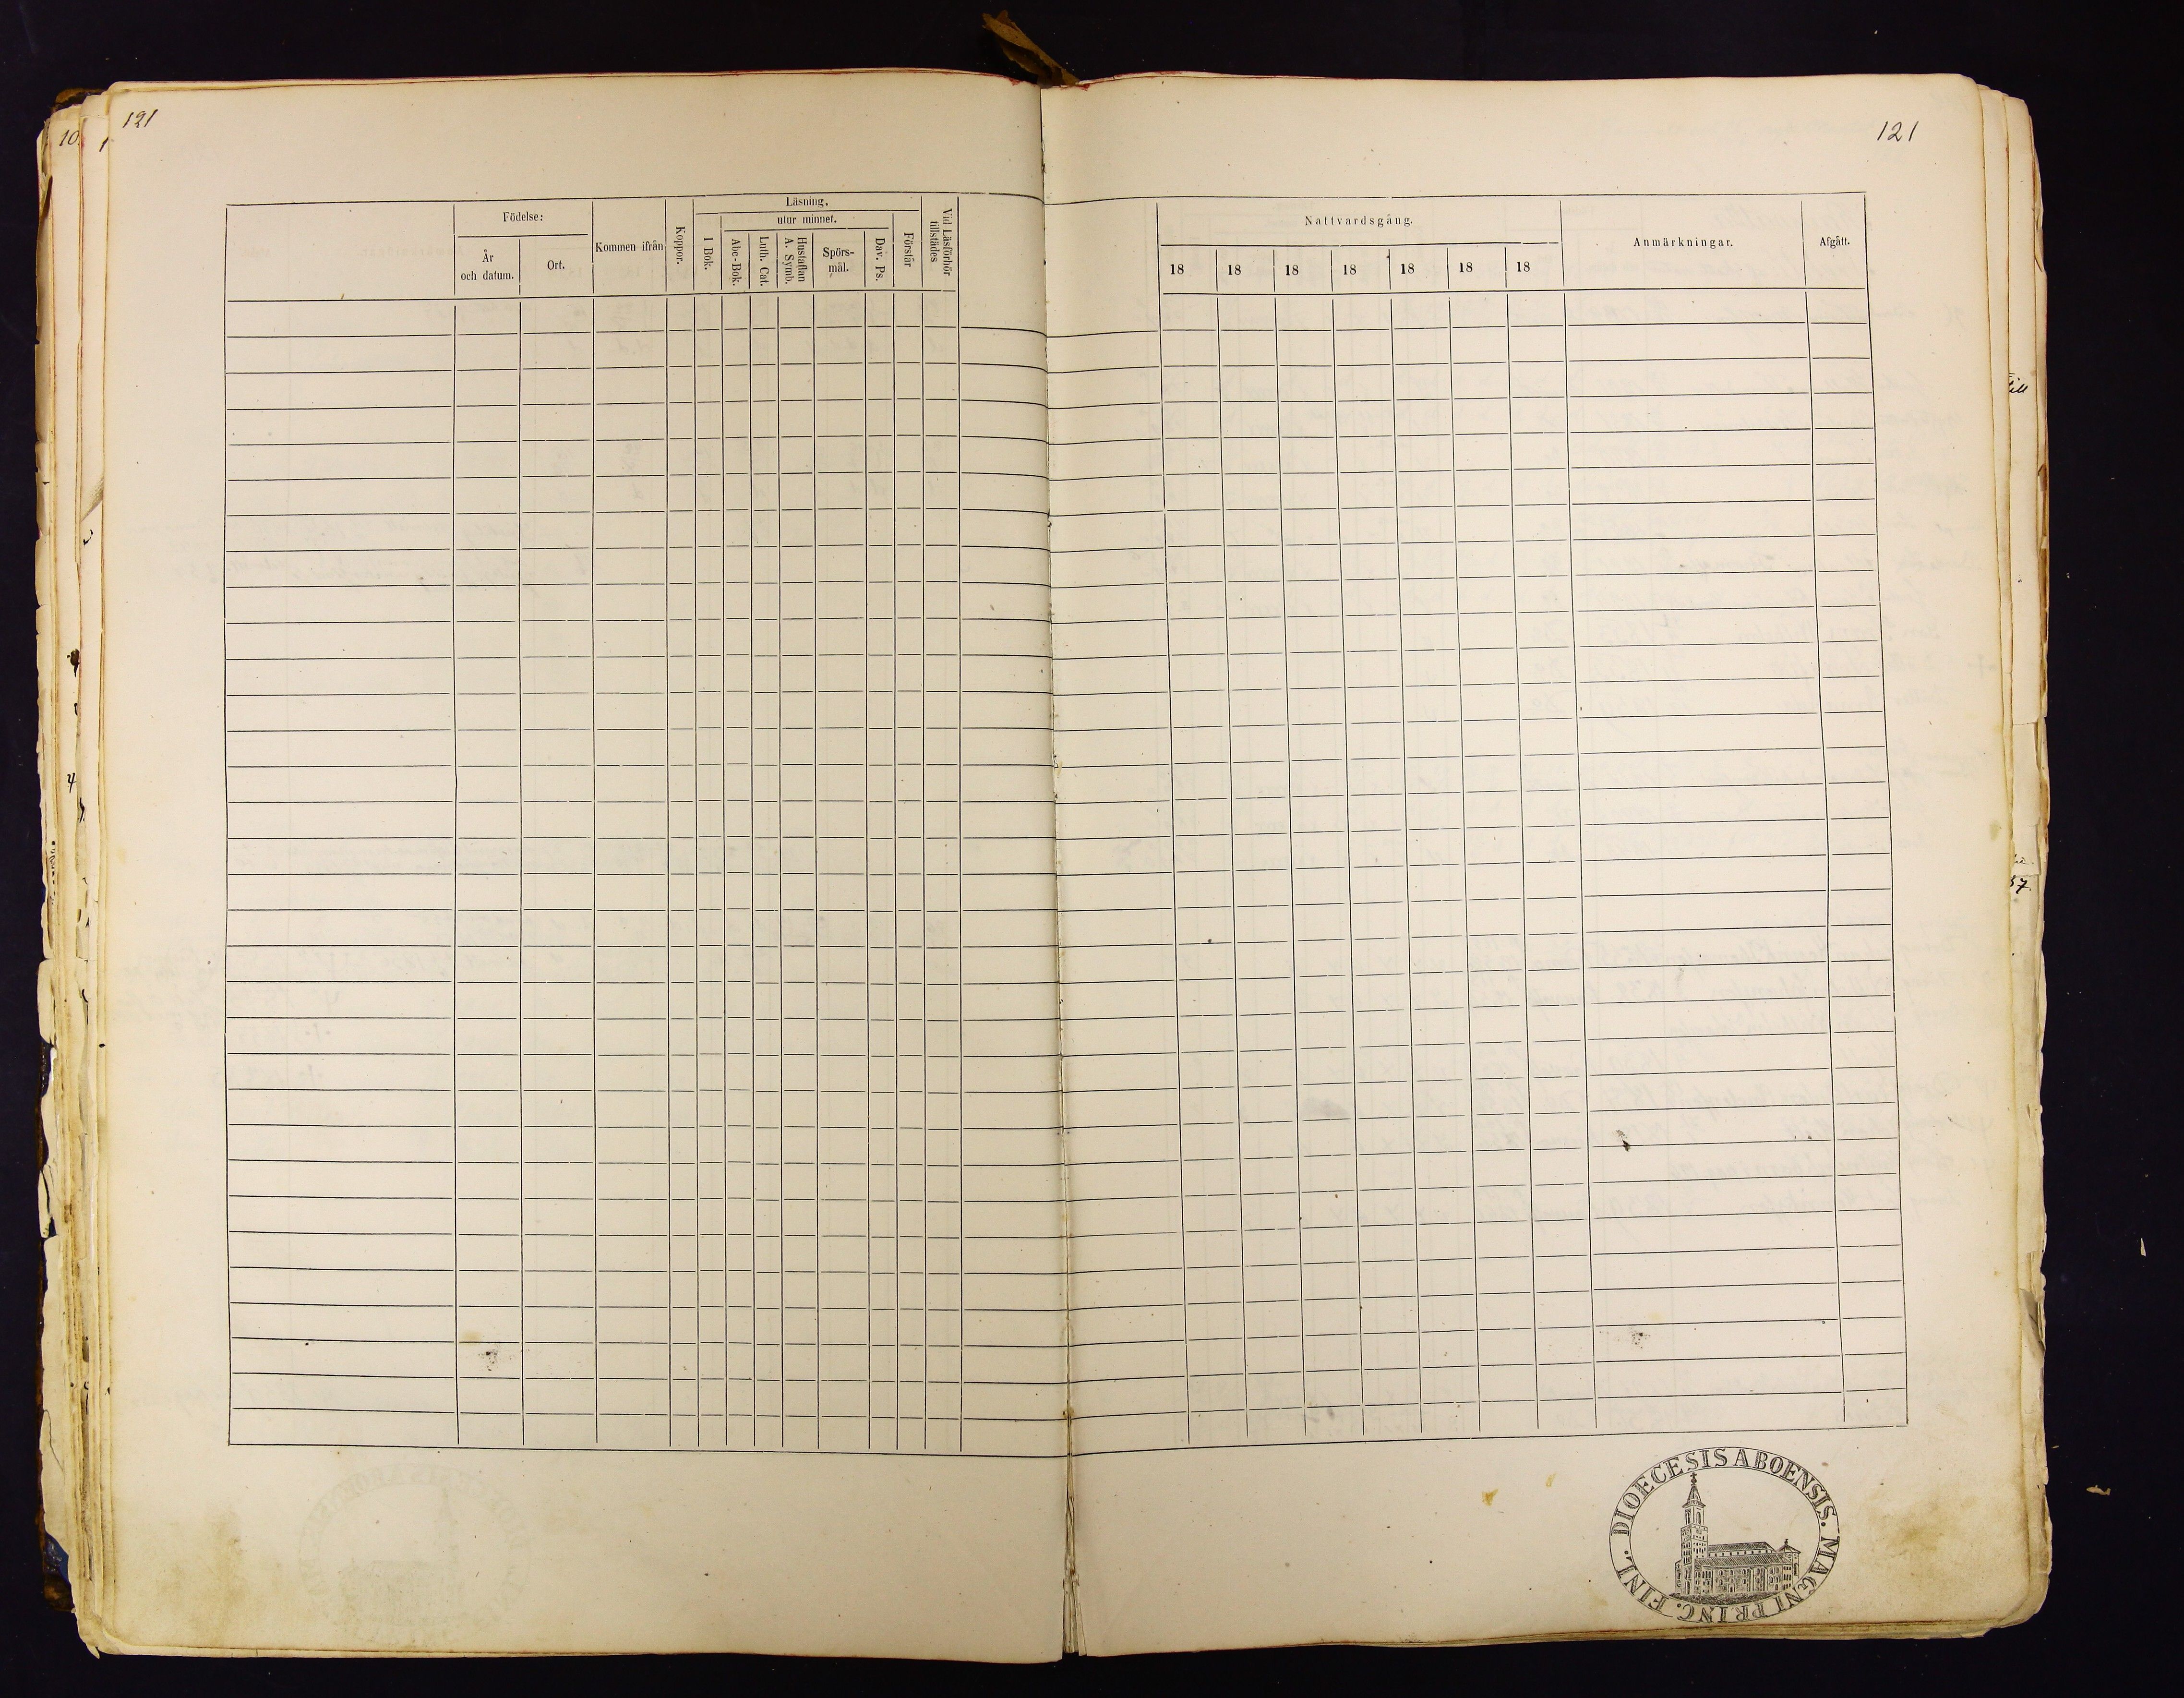 121
10
121
Födelse:
År
och datum.
Ort.
Kommen ifrån
Koppor.
Läsning,
utur minnet.
I Bok.
Abc-Bok.
Luth. Cat.
Hustaflan
A. Symb.
Spörs-
mål.
Dav. Ps.
Förstår
Vid Läsförhör
tillstädes
Nattvardsgång.
18 18 18 18 18 18 18
Anmärkningar.
Afgått.
till
57
4
DIOECESIS ABOENSIS. MAGNI PRINC. FINL.